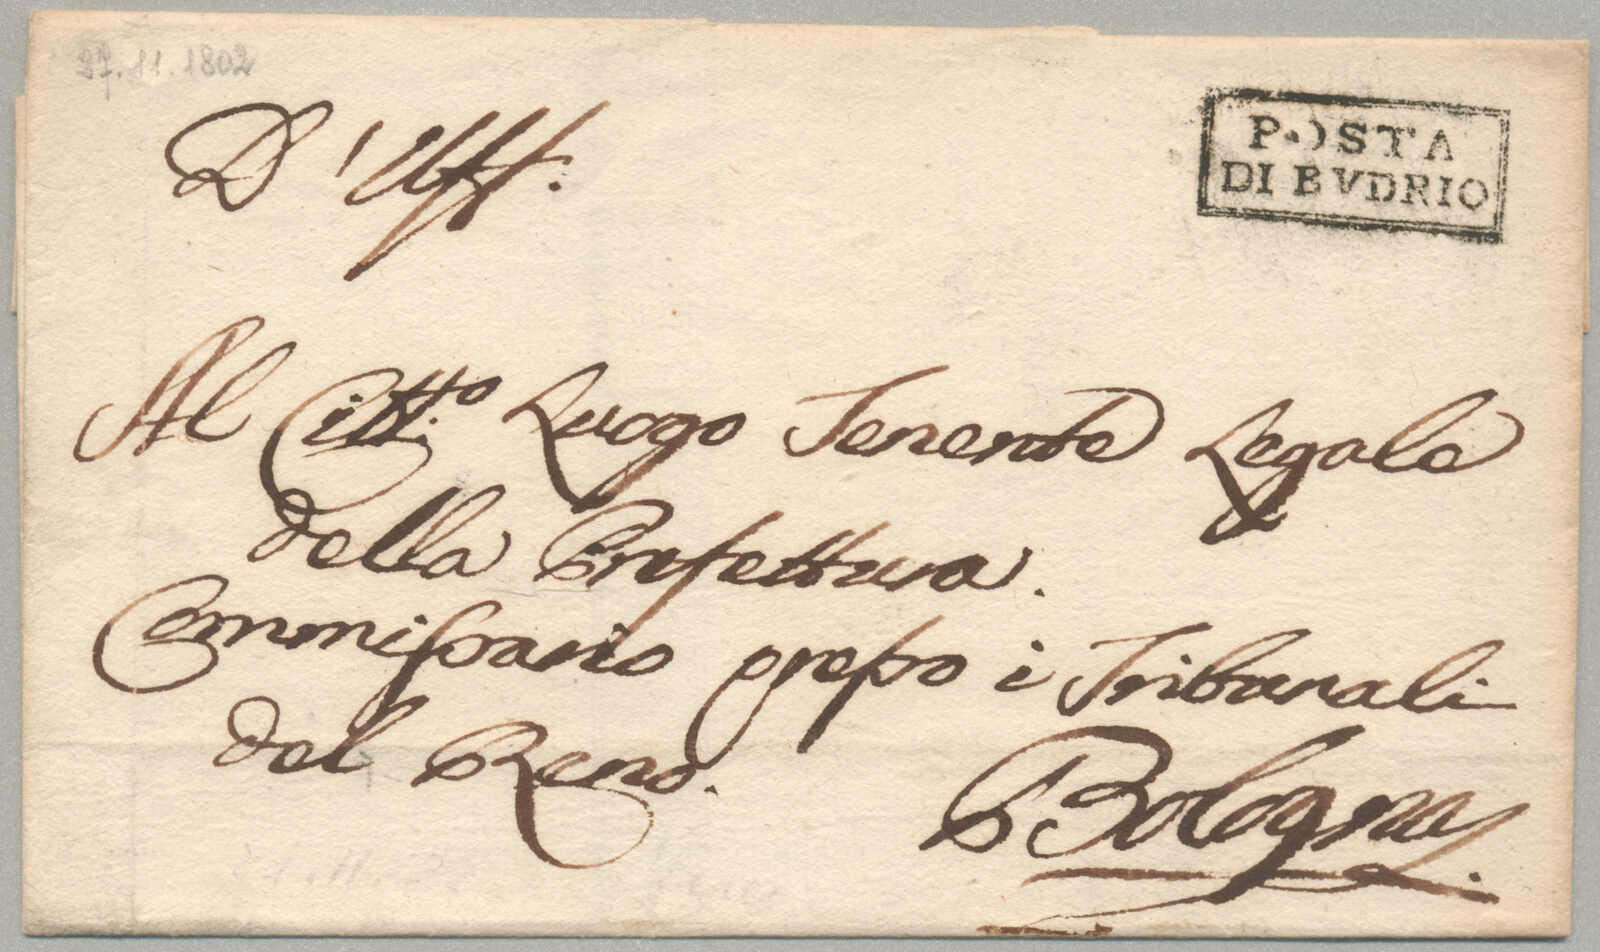 27.11.1802
POSTA
DI BVDRIO
D'Uff.
Al Citt.º Luogo Tenente Legale
della Prefettura.
Commissario presso i Tribunali
del Reno.
Bologna